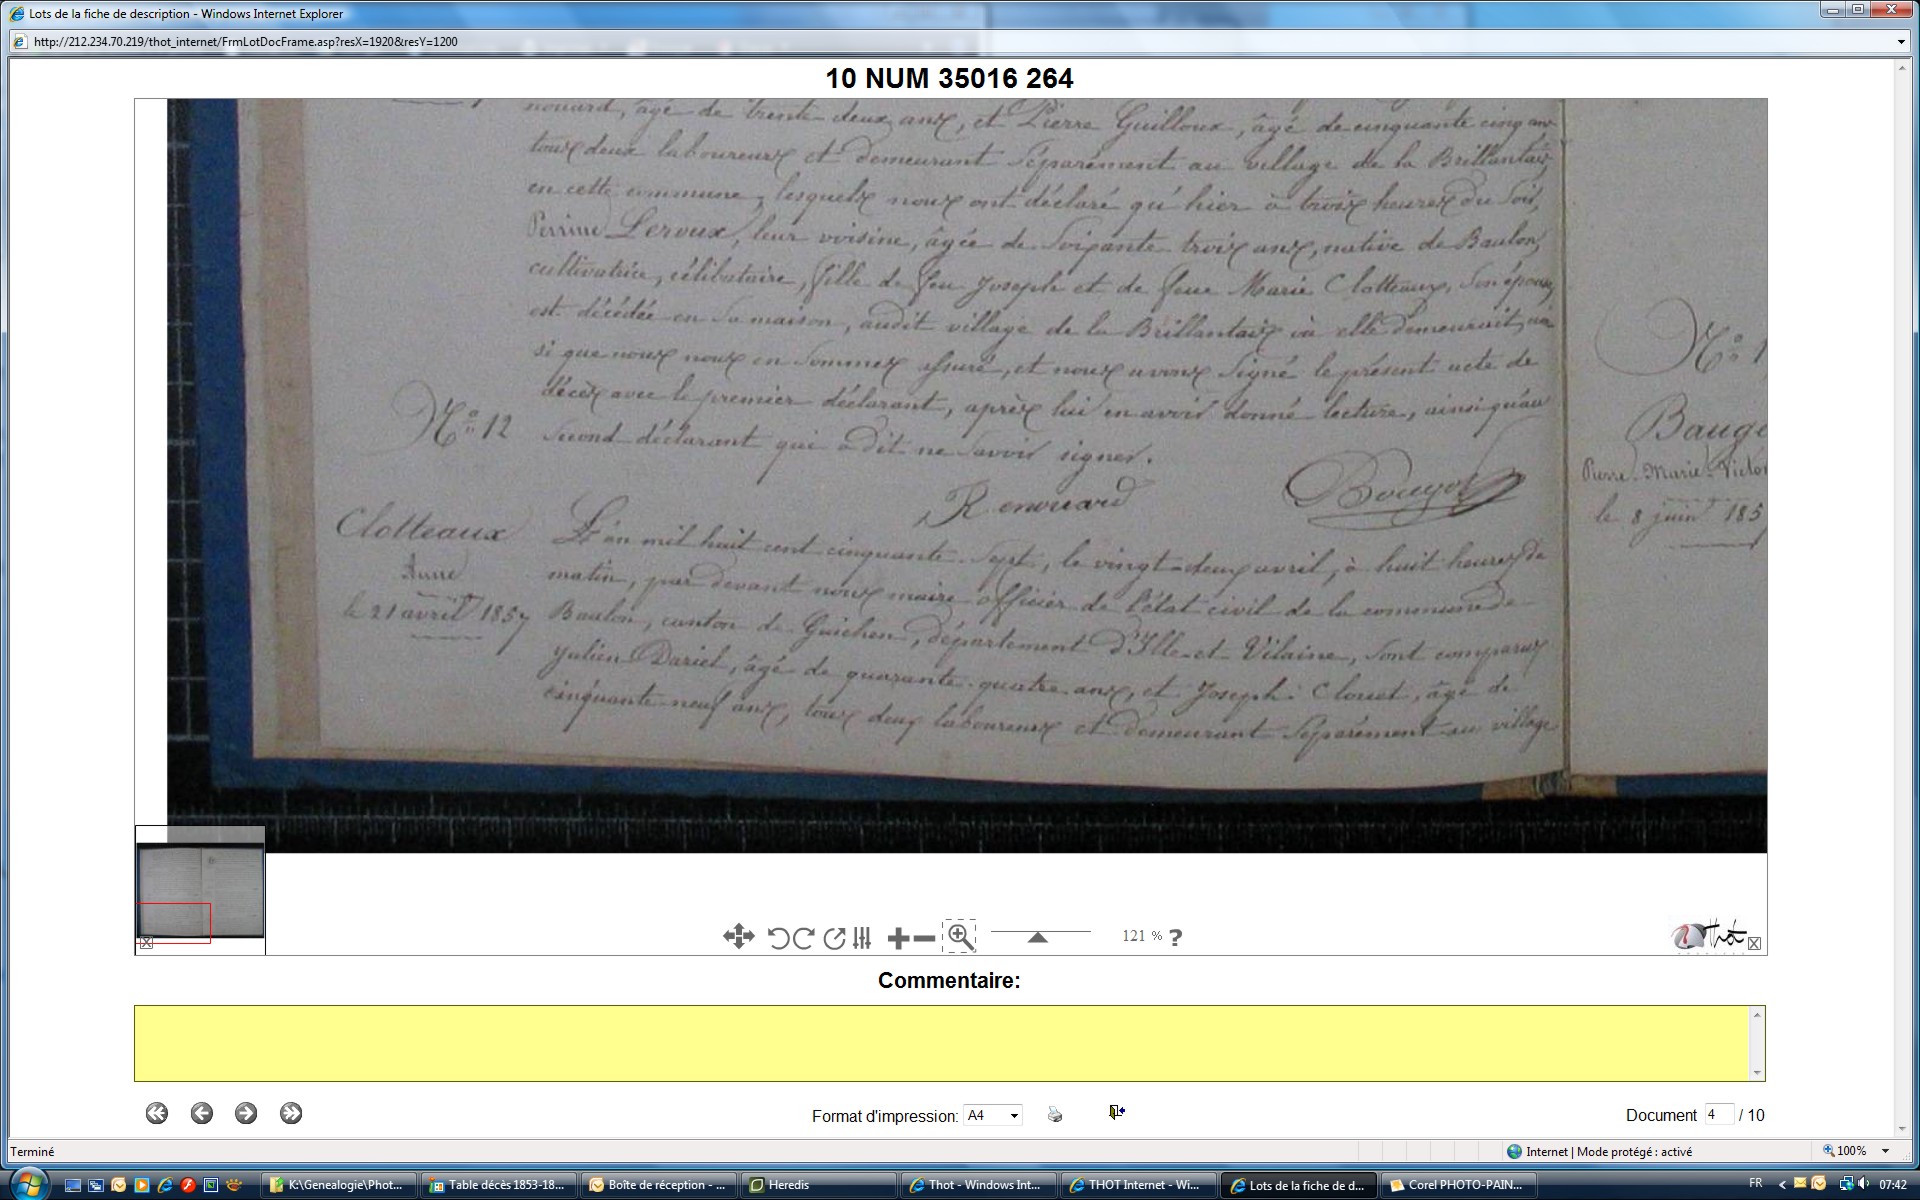 Lots de la fiche de description - Windows Internet Explorer
http://212.234.70.219/thot_internet/FrmLotDocFrame.asp?resX=1920&resY=1200
10 NUM 35016 264
nouard, âgé de trente deux ans, et Pierre Guilloux, âgé de cinquante cinq ans
tous deux laboureurs et demeurant Séparément au village de la Brillantais,
en cette commune, lesquels nous ont déclaré qu'hier à trois heures du Soir,
Perrine Leroux, leur voisine, âgée de Soixante trois ans, native de Baulon,
cultivatrice, célibataire, fille de feu Joseph et de feue Marie Clotteaux, Son épouse,
est décédée en Sa maison, audit village de la Brillantais où elle demeurait, ain
si que nous nous en Sommes assuré, et nous avons Signé le présent acte de
décès avec le premier déclarant, après lui en avoir donné lecture, ainsi qu'au
Second déclarant qui a dit ne Savoir signer.
Renouard
N° 12
Clotteaux
Anne
le 21 avril 1857
L'an mil huit cent cinquante Sept, le vingt-deux avril, à huit heures de
matin, par devant nous maire officier de l'état civil de la commune de
Baulon, canton de Guichen, département d'Ille-et-Vilaine, Sont comparus
Julien Dariel, âgé de quarante-quatre ans, et Joseph Clouet, âgé de
cinquante-neuf ans, tous deux laboureurs et demeurant Séparément au village
N° 1
Bauge
Pierre-Marie-Victo
le 8 juin 185
121 % ?
Thot
Commentaire:
Format d'impression: A4
Document 4 / 10
Terminé
Internet | Mode protégé : activé
100%
K:\Genealogie\Phot...
Table décès 1853-18...
Boîte de réception - ...
Heredis
Thot - Windows Int...
THOT Internet - Wi...
Lots de la fiche de d...
Corel PHOTO-PAIN...
FR
07:42